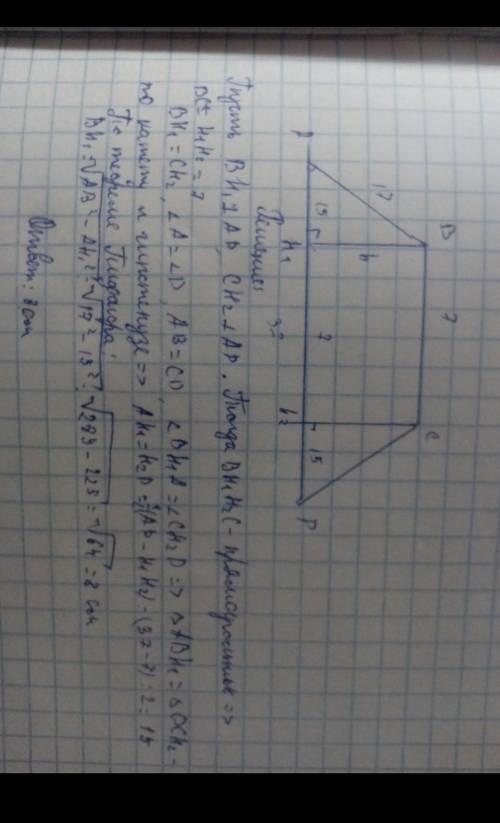 B 7 C
17 h
A 15 H₁ 7 H₂ 15 D
37
Решение
Пусть BH₁⊥AD, CH₂⊥AD. Тогда BH₁H₂C - прямоугольник =>
BC = H₁H₂ = 7
BH₁ = CH₂, ∠A = ∠D, AB = CD, ∠BH₁A = ∠CH₂D => △ABH₁ = △DCH₂ -
по катету и гипотенузе => AH₁ = H₂D = (AD - H₁H₂) = (37-7) : 2 = 15
По теореме Пифагора:
BH₁ = √AB² - AH₁² = √17² - 15² = √289 - 225 = √64 = 8 см
Ответ: 8 см